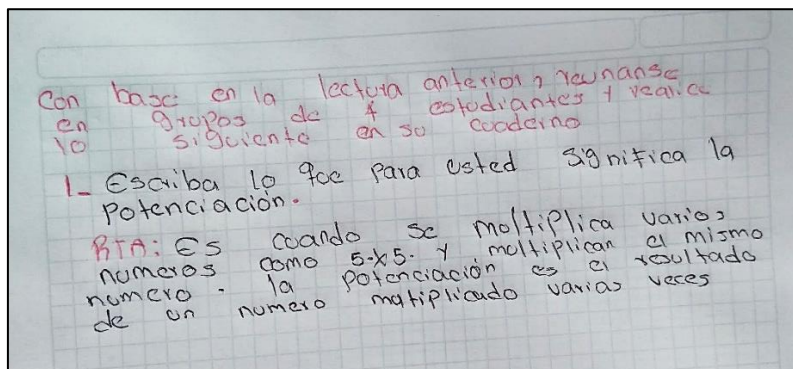 Con base en la lectura anterior, reunanse
en grupos de 4 estudiantes y realice
lo siguiente en su cuaderno
1- Escriba lo que para usted significa la
potenciación.
RTA: Es cuando se moltiplica varios
numeros como 5x5. y moltiplican el mismo
numero. la potenciación es el resultado
de un numero matiplicado varias veces